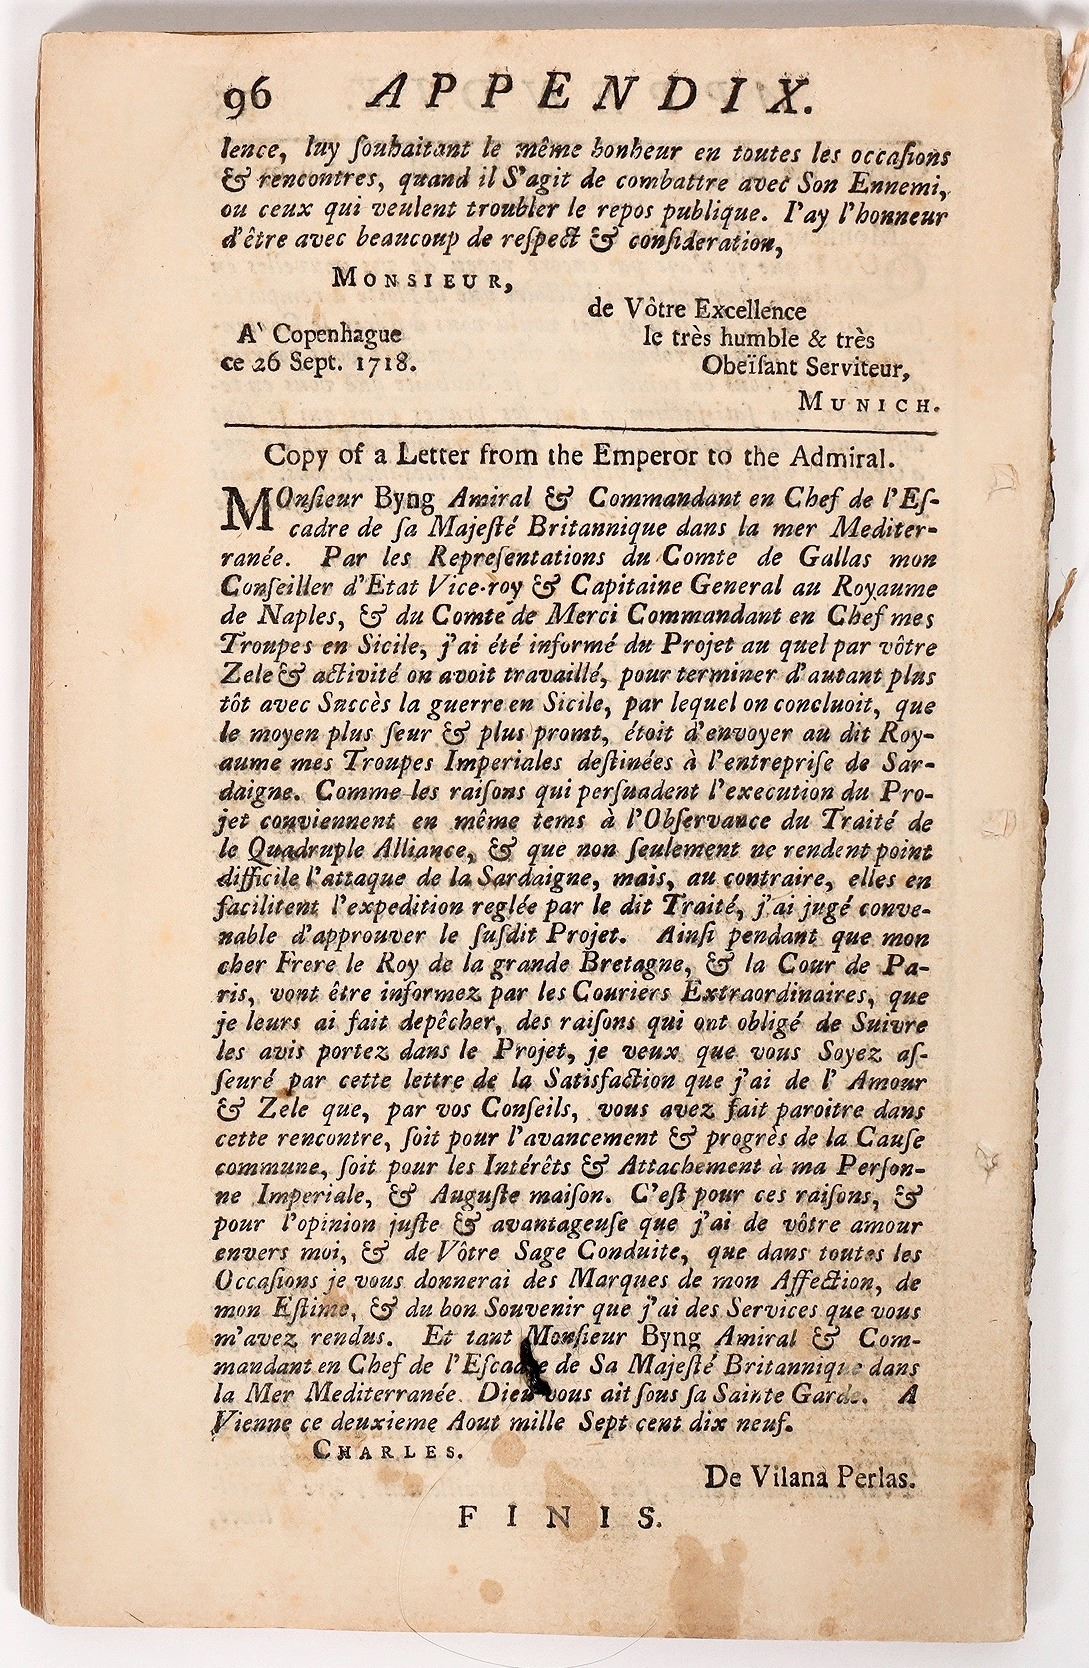 96 APPENDIX.
lence, luy ſouhaitant le même bonheur en toutes les occaſions
& rencontres, quand il S'agit de combattre avec Son Ennemi,
ou ceux qui veulent troubler le repos publique. I'ay l'honneur
d'être avec beaucoup de reſpect & conſideration,
MONSIEUR,
de Vôtre Excellence
A' Copenhague le très humble & très
ce 26 Sept. 1718. Obeïſant Serviteur,
MUNICH.
Copy of a Letter from the Emperor to the Admiral.
MOnſieur Byng Amiral & Commandant en Chef de l'Eſ-
cadre de ſa Majeſté Britannique dans la mer Mediter-
ranée. Par les Repreſentations du Comte de Gallas mon
Conſeiller d'Etat Vice-roy & Capitaine General au Royaume
de Naples, & du Comte de Merci Commandant en Chef mes
Troupes en Sicile, j'ai été informé du Projet au quel par vôtre
Zele & activité on avoit travaillé, pour terminer d'autant plus
tôt avec Succès la guerre en Sicile, par lequel on concluoit, que
le moyen plus ſeur & plus promt, étoit d'envoyer au dit Roy-
aume mes Troupes Imperiales deſtinées à l'entrepriſe de Sar-
daigne. Comme les raiſons qui perſuadent l'execution du Pro-
jet conviennent en même tems à l'Obſervance du Traité de
le Quadruple Alliance, & que non ſeulement ne rendent point
difficile l'attaque de la Sardaigne, mais, au contraire, elles en
facilitent l'expedition reglée par le dit Traité, j'ai jugé conve-
nable d'approuver le ſuſdit Projet. Ainſi pendant que mon
cher Frere le Roy de la grande Bretagne, & la Cour de Pa-
ris, vont être informez par les Couriers Extraordinaires, que
je leurs ai fait depêcher, des raiſons qui ont obligé de Suivre
les avis portez dans le Projet, je veux que vous Soyez aſ-
ſeuré par cette lettre de la Satisfaction que j'ai de l' Amour
& Zele que, par vos Conſeils, vous avez fait paroitre dans
cette rencontre, ſoit pour l'avancement & progrès de la Cauſe
commune, ſoit pour les Intérêts & Attachement à ma Perſon-
ne Imperiale, & Auguſte maiſon. C'eſt pour ces raiſons, &
pour l'opinion juſte & avantageuſe que j'ai de vôtre amour
envers moi, & de Vôtre Sage Conduite, que dans toutes les
Occaſions je vous donnerai des Marques de mon Affection, de
mon Eſtime, & du bon Souvenir que j'ai des Services que vous
m'avez rendus. Et tant Monſieur Byng Amiral & Com-
mandant en Chef de l'Eſcadre de Sa Majeſté Britannique dans
la Mer Mediterranée. Dieu vous ait ſous ſa Sainte Garde. A
Vienne ce deuxieme Aout mille Sept cent dix neuf.
CHARLES.
De Vilana Perlas.
FINIS.